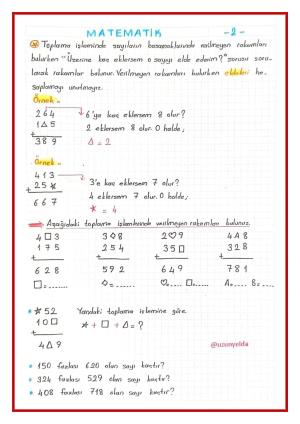 MATEMATİK -2-
Toplama işleminde sayıların basamaklarında verilmeyen rakamları
bulurken "Üzerine kaç eklersem o sayıyı elde ederim?" sorusu soru-
larak rakamlar bulunur. Verilmeyen rakamları bulurken eldeleri he-
saplamayı unutmayız.
Örnek
264
1Δ5
+
389
6'ya kaç eklersem 8 olur?
2 eklersem 8 olur. O halde;
Δ = 2
Örnek
413
25★
+
667
3'e kaç eklersem 7 olur?
4 eklersem 7 olur. O halde;
★ = 4
Aşağıdaki toplama işlemlerinde verilmeyen rakamları bulunuz.
4□3 3◇8 2♡9 4A8
175 254 35□ 323
+ + + +
628 592 649 781
□=...... ◇=..... ♡=..... A=.....
★52
10□
+
4Δ9
Yandaki toplama işlemine göre
★ + □ + Δ = ?
@uzunyelda
• 150 fazlası 620 olan sayı kaçtır?
• 324 fazlası 529 olan sayı kaçtır?
• 408 fazlası 718 olan sayı kaçtır?